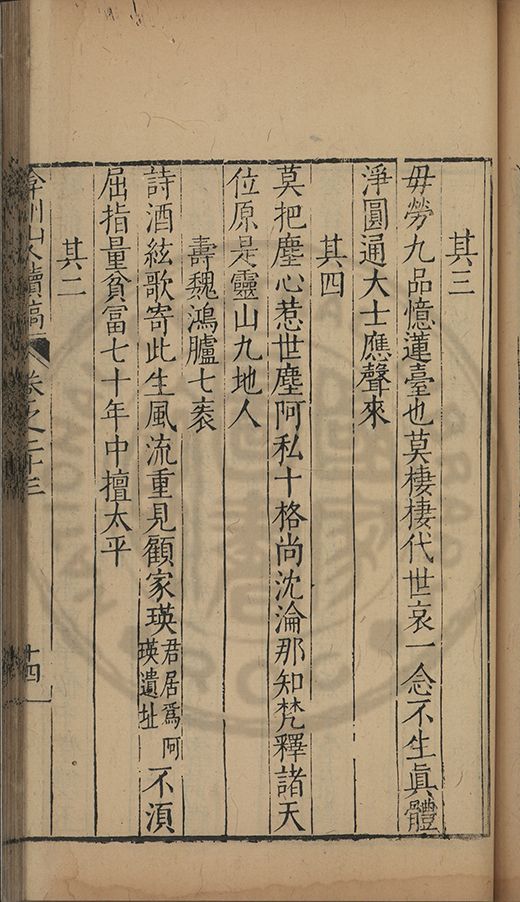 其三
毋勞九品憶蓮臺也莫棲棲代世哀一念不生真體
淨圓通大士應聲來
其四
莫把塵心惹世塵阿私十格尚沈淪那知梵釋諸天
位原是靈山九地人
壽魏鴻臚七袠
詩酒絃歌寄此生風流重見顧家瑛君居爲阿瑛遺址不湏
屈指量貧富七十年中擅太平
其二
弇州山人續稿 卷之二十三 十四